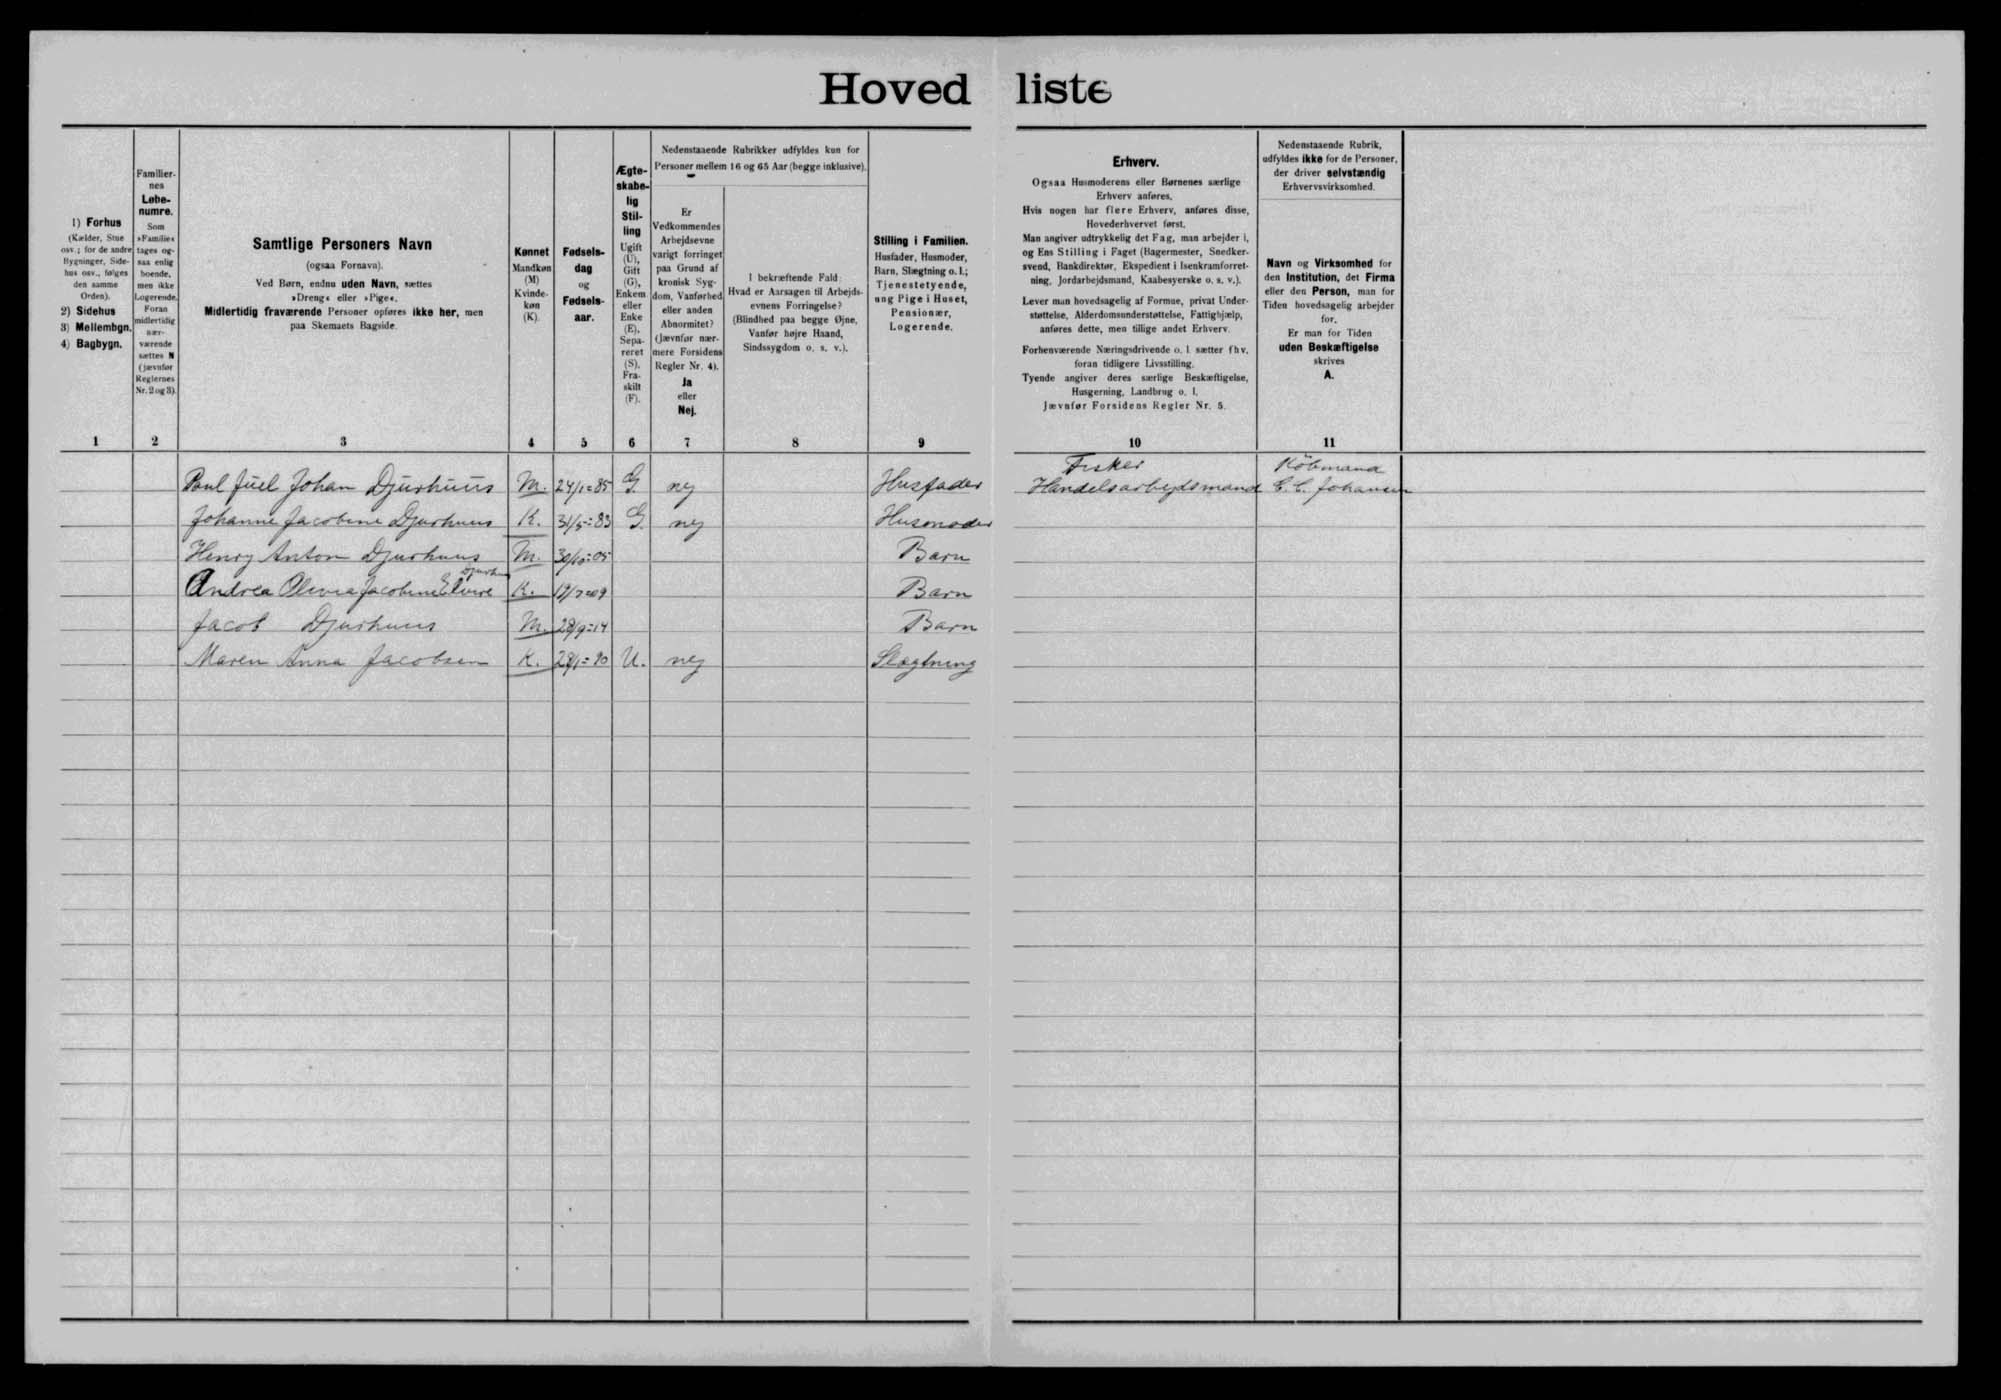 Hoved liste
1) Forhus
(Kælder, Stue
osv.; for de andre
Bygninger, Side-
hus osv., følges
den samme
Orden).
2) Sidehus
3) Mellembgn.
4) Bagbygn.
1
Familier-
nes
Løbe-
numre.
Som
»Familie«
tages og-
saa enlig
boende,
men ikke
Logerende.
Foran
midlertidig
nær-
værende
sættes N
(jævnfør
Reglernes
Nr. 2 og 3).
2
Samtlige Personers Navn
(ogsaa Fornavn).
Ved Børn, endnu uden Navn, sættes
»Dreng« eller »Pige«.
Midlertidig fraværende Personer opføres ikke her, men
paa Skemaets Bagside.
3
Kønnet
Mandkøn
(M)
Kvinde-
køn
(K).
4
Fødsels-
dag
og
Fødsels-
aar.
5
Ægte-
skabe-
lig
Stil-
ling
Ugift
(U),
Gift
(G),
Enkem.
eller
Enke
(E),
Sepa-
reret
(S),
Fra-
skilt
(F).
6
Nedenstaaende Rubrikker udfyldes kun for
Personer mellem 16 og 65 Aar (begge inklusive).
Er
Vedkommendes
Arbejdsevne
varigt forringet
paa Grund af
kronisk Syg-
dom, Vanførhed
eller anden
Abnormitet?
(Jævnfør nær-
mere Forsidens
Regler Nr. 4).
Ja
eller
Nej.
7
I bekræftende Fald:
Hvad er Aarsagen til Arbejds-
evnens Forringelse?
(Blindhed paa begge Øjne,
Vanfør højre Haand,
Sindssygdom o. s. v.).
8
Stilling i Familien.
Husfader, Husmoder,
Barn, Slægtning o. l.;
Tjenestetyende,
ung Pige i Huset,
Pensionær,
Logerende.
9
Erhverv.
Ogsaa Husmoderens eller Børnenes særlige
Erhverv anføres.
Hvis nogen har flere Erhverv, anføres disse,
Hovederhvervet først.
Man angiver udtrykkelig det Fag, man arbejder i,
og Ens Stilling i Faget (Bagermester, Snedker-
svend, Bankdirektør, Ekspedient i Isenkramforret-
ning, Jordarbejdsmand, Kaabesyerske o. s. v.).
Lever man hovedsagelig af Formue, privat Under-
støttelse, Alderdomsunderstøttelse, Fattighjælp,
anføres dette, men tillige andet Erhverv.
Forhenværende Næringsdrivende o. l. sætter fhv.
foran tidligere Livsstilling.
Tyende angiver deres særlige Beskæftigelse,
Husgerning, Landbrug o. l.
Jævnfør Forsidens Regler Nr. 5.
10
Nedenstaaende Rubrik,
udfyldes ikke for de Personer,
der driver selvstændig
Erhvervsvirksomhed.
Navn og Virksomhed for
den Institution, det Firma
eller den Person, man for
Tiden hovedsagelig arbejder
for.
Er man for Tiden
uden Beskæftigelse
skrives
A.
11
Fisker Købmand
Poul Juel Johan Djurhuus M. 24/1=85 G. nej Husfader Handelsarbejdsmand C. C. Johansen
Johanne Jacobine Djurhuus K. 31/5=83 G. nej Husmoder
Henry Anton Djurhuus M. 30/10=05 Barn
Andrea Olivia Jacobine Elvire Djurhuus K. 19/7=09 Barn
Jacob Djurhuus M. 28/9=14 Barn
Maren Anna Jacobsen K. 28/1=90 U. nej Slægtning